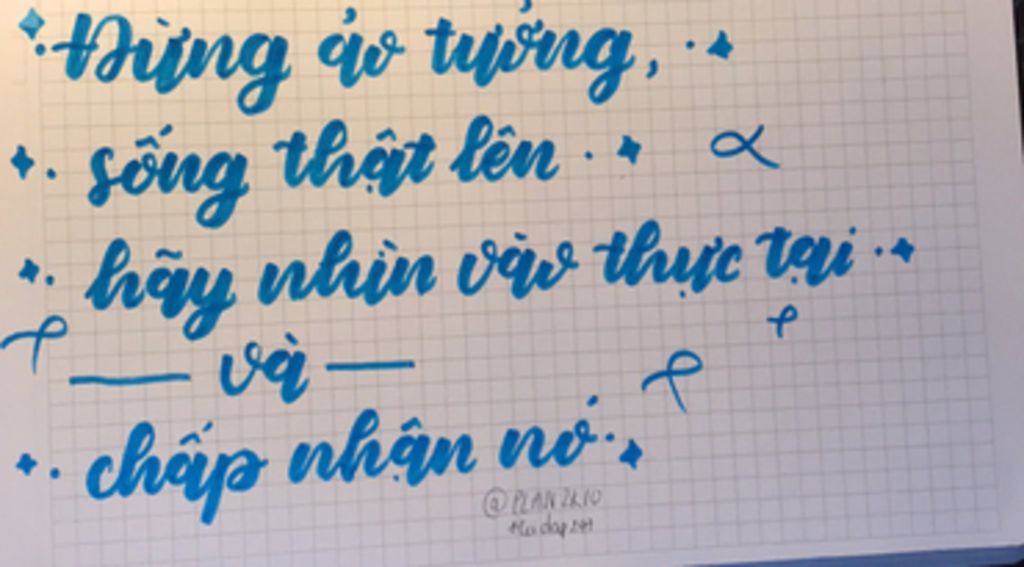 Đừng ảo tưởng,
sống thật lên
hãy nhìn vào thực tại
và
chấp nhận nó